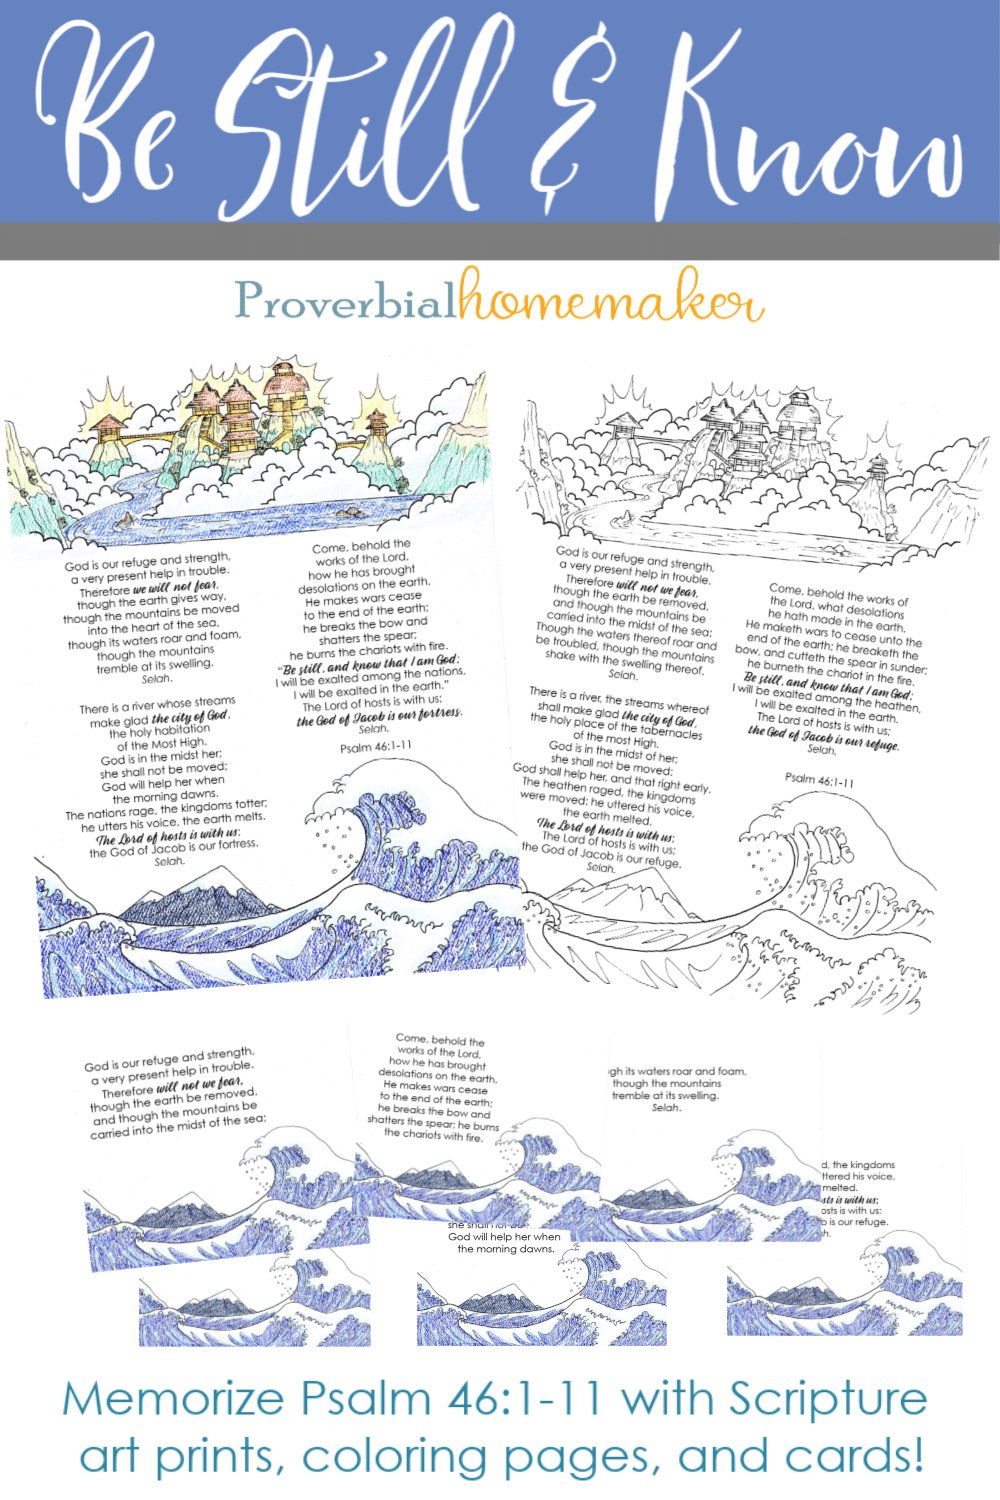 Be Still & Know
Proverbialhomemaker
God is our refuge and strength,
a very present help in trouble.
Therefore we will not fear,
though the earth gives way,
though the mountains be moved
into the heart of the sea,
though its waters roar and foam,
though the mountains
tremble at its swelling.
Selah.
There is a river whose streams
make glad the city of God,
the holy habitation
of the Most High.
God is in the midst her;
she shall not be moved;
God will help her when
the morning dawns.
The nations rage, the kingdoms totter;
he utters his voice, the earth melts.
The Lord of hosts is with us;
the God of Jacob is our fortress.
Selah.
Come, behold the
works of the Lord,
how he has brought
desolations on the earth.
He makes wars cease
to the end of the earth;
he breaks the bow and
shatters the spear;
he burns the chariots with fire.
"Be still, and know that I am God;
I will be exalted among the nations,
I will be exalted in the earth."
The Lord of hosts is with us;
the God of Jacob is our fortress.
Selah.
Psalm 46:1-11
God is our refuge and strength,
a very present help in trouble.
Therefore will not we fear,
though the earth be removed,
and though the mountains be
carried into the midst of the sea;
Though the waters thereof roar and
be troubled, though the mountains
shake with the swelling thereof.
Selah.
There is a river, the streams whereof
shall make glad the city of God,
the holy place of the tabernacles
of the most High.
God is in the midst of her;
she shall not be moved;
God shall help her, and that right early.
The heathen raged, the kingdoms
were moved; he uttered his voice,
the earth melted.
The Lord of hosts is with us;
The Lord of hosts is with us;
the God of Jacob is our refuge.
Selah.
Come, behold the works of
the Lord, what desolations
he hath made in the earth.
He maketh wars to cease unto the
end of the earth; he breaketh the
bow, and cutteth the spear in sunder;
he burneth the chariot in the fire.
Be still, and know that I am God;
I will be exalted among the heathen,
I will be exalted in the earth.
The Lord of hosts is with us;
the God of Jacob is our refuge.
Selah.
Psalm 46:1-11
God is our refuge and strength,
a very present help in trouble.
Therefore will not we fear,
though the earth be removed,
and though the mountains be
carried into the midst of the sea;
Come, behold the
works of the Lord,
how he has brought
desolations on the earth.
He makes wars cease
to the end of the earth;
he breaks the bow and
shatters the spear; he burns
the chariots with fire.
gh its waters roar and foam,
though the mountains
tremble at its swelling.
Selah.
she shall not
God will help her when
the morning dawns.
d, the kingdoms
ttered his voice,
melted.
sts is with us;
osts is with us;
b is our refuge.
h.
Memorize Psalm 46:1-11 with Scripture
art prints, coloring pages, and cards!